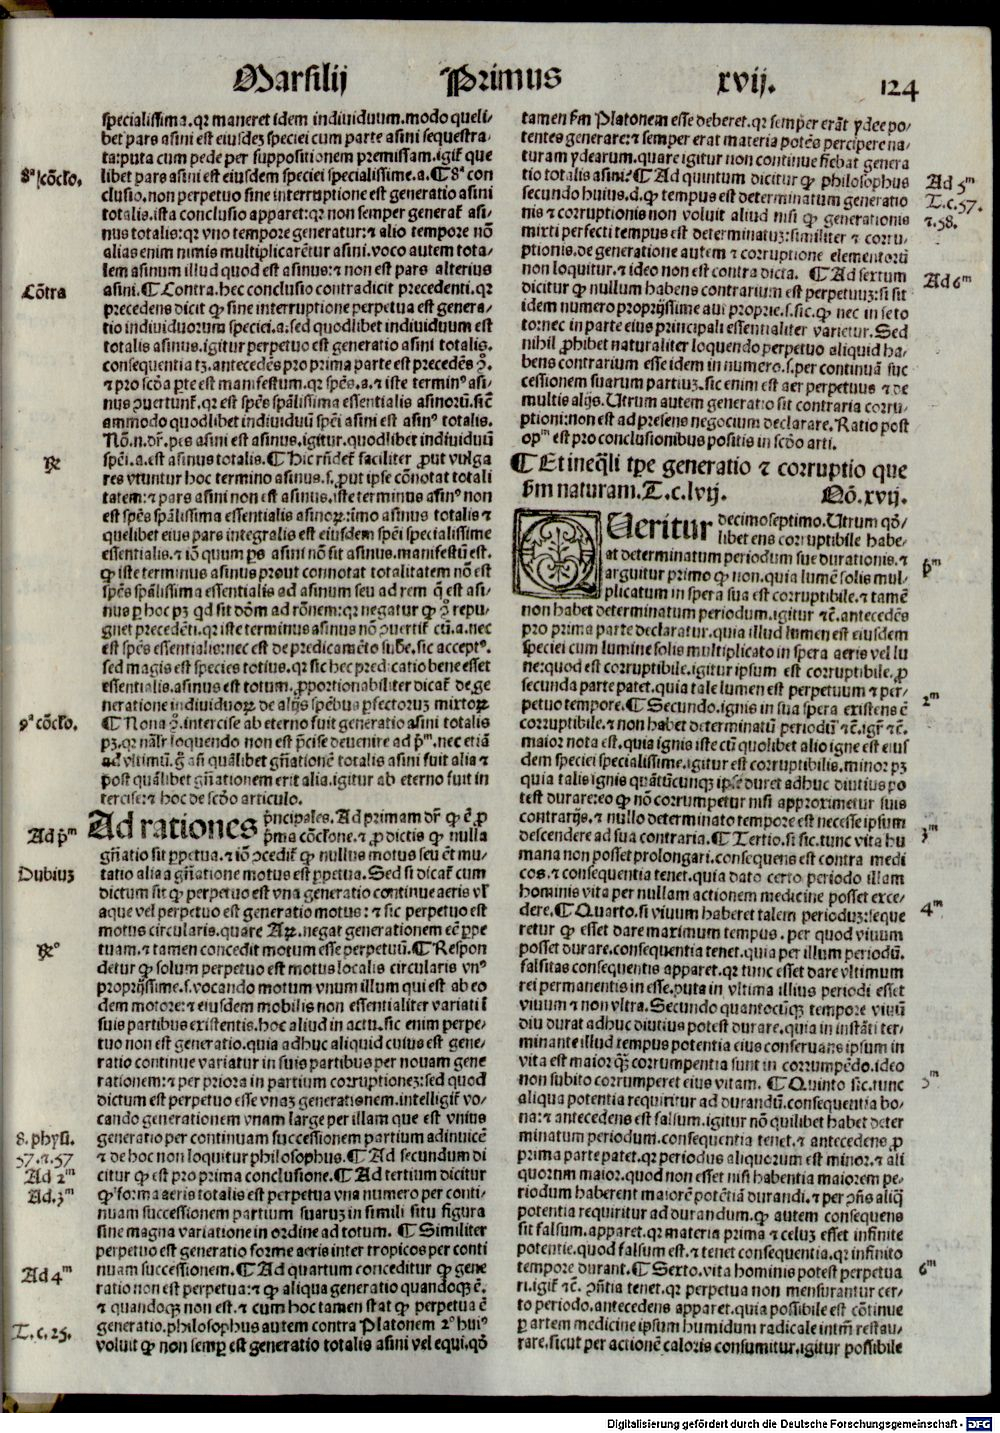 Marsilij Primus xvij. 124
specialissima.qr maneret idem indiuiduum.modo queli-
bet pars asini est eiusdez speciei cum parte asini sequestra-
ta:puta cum pede per suppositionem premissam.igit̃ que
8ª ↄ̃clo. libet pars asini est eiusdem speciei specialissime.a.¶8ª con
clusio.non perpetuo sine interruptione est generatio asini
totalis.ista conclusio apparet:qr non semper generat̃ asi-
nus totalis:qr vno tempore generatur:⁊ alio tempore nõ
alias enim nimis multiplicarẽtur asini.voco autem tota-
lem asinum illud quod est asinus:⁊ non est pars alterius
Cõtra asini.¶Contra.hec conclusio contradicit precedenti.qr
precedens dicit ꝙ sine interruptione perpetua est genera-
tio indiuiduorum speciei.a:sed quodlibet indiuiduum est
totalis asinus.igitur perpetuo est generatio asini totalis.
consequentia tꝫ.antecedẽs pro prima parte est precedẽs ꝯ̃.
⁊ pro scõa pte est manifestum.qr spẽs.a.⁊ iste terminꝰ asi-
nus ꝯuertunt̃.qr est spẽs spãlissima essentialis asinorũ.sic̃
ammodo quodlibet indiuiduũ spẽi asini est asinꝰ totalis.
Nõ.n.dr̃.pes asini est asinus.igitur.quodlibet indiuiduũ
℞ spẽi.a.est asinus totalis.¶Hic rñdet̃ faciliter ꝓut vulga
res vtuntur hoc termino asinus.s.ꝓut ipse cõnotat totali
tatem:⁊ pars asini non est asinus.iste terminus asinꝰ non
est spẽs spãlissima essentialis asinoꝝ:ĩmo asinus totalis ⁊
quelibet eius pars integralis est eiusdem spẽi specialissime
essentialis.⁊ iõ quum ps asini nõ sit asinus.manifestũ est.
ꝙ iste terminus asinus prout connotat totalitatem nõ est
spẽs spãlissima essentialis ad asinum seu ad rem q̃ est asi-
nus ꝑ hoc pꝫ qd sit dõm ad rõnem:qr negatur ꝙ ꝯ̃ repu-
gnet precedẽti.qr iste terminus asinus nõ ꝯuertit̃ cũ.a.nec
est spẽs essentialis:nec est de predicamẽto sube.sic acceptꝰ.
sed magis est species totius.qr sic hec predicatio bene esset
essentialis.asinus est totum.ꝓportionabiliter dicat̃ de ge
neratione indiuiduoꝝ de alijs spẽbus ꝑfectorũ mixtoꝝ
9ª cõclo. ¶Nona ꝯ̃.intercise ab eterno fuit generatio asini totalis
pꝫ.qr nãlr̃ loquendo non est p̃cise deuenire ad p̃ᵐ.nec etiã
ad vltimũ.g̃ añ quãlibet gñationẽ totalis asini fuit alia ⁊
post quãlibet gñationem erit alia.igitur ab eterno fuit in
tercise:⁊ hoc de scõo articulo.
Ad p̃ᵐ Ad rationes p̃ncipales.Ad primam dr̃ ꝙ ẽ ꝓ
p̃ma cõclone.⁊ ꝓ dictis ꝙ nulla
gñatio sit ꝑpetua.⁊ iõ ꝯcedit̃ ꝙ nullus motus seu ẽt mu-
Dubiuꝫ tatio alia a gñatione motus est ꝑpetua.Sed si dicat̃ cum
dictum sit ꝙ perpetuo est vna generatio continue aeris vl̃
aque vel perpetuo est generatio motus:⁊ sic perpetuo est
motus circularis.quare Aꝝ.negat generationem eẽ ꝑpe
℞º tuam.⁊ tamen concedit motum esse perpetuũ.¶Respon
detur ꝙ solum perpetuo est motus localis circularis vnꝰ
proprijssime.s.vocando motum vnum illum qui est ab eo
dem motore:⁊ eiusdem mobilis non essentialiter variati ĩ
suis partibus existentis.hoc aliud in actu.sic enim perpe-
tuo non est generatio.quia adhuc aliquid cuius est gene-
ratio continue variatur in suis partibus per nouam gene
rationem:⁊ per priora in partium corruptionez:sed quod
dictum est perpetuo esse vnaz generationem.intelligit̃ vo-
cando generationem vnam large per illam que est vnius
8.physi. generatio per continuam successionem partium adinuicẽ
57.⁊.57 ⁊ de hoc non loquitur philosophus.¶Ad secundum di
Ad 2ᵐ citur ꝙ est pro prima conclusione.¶Ad tertium dicitur
Ad.3ᵐ ꝙ forma aeris totalis est perpetua vna numero per conti-
nuam successionem partium suaruz in simili situ figura
sine magna variatione in ordine ad totum. ¶Similiter
perpetuo est generatio forme aeris inter tropicos per conti
Ad 4ᵐ nuam successionem.¶Ad quartum conceditur ꝙ gene
ratio non est perpetua:⁊ ꝙ aliqua generatio quandoqꝫ ẽ.
⁊ quandoqꝫ non est.⁊ cum hoc tamen stat ꝙ perpetua ẽ
T.c.25. generatio.philosophus autem contra Platonem 2º huiꝰ
voluit ꝙ non semꝑ est generatio totalis asini vel equi.qõ
tamen ẜm Platonem esse deberet.qr semper erãt ydee po-
tentes generare:⁊ semper erat materia potẽs percipere na-
turam ydearum.quare igitur non continue fiebat genera
Ad 5ᵐ tio totalis asini?¶Ad quintum dicitur ꝙ philosophus
T.c.57. secundo huius.d.ꝙ tempus est determinatum generatio
⁊.58. nis ⁊ corruptionis non voluit aliud nisi ꝙ generationis
mixti perfecti tempus est determinatuꝫ:similiter ⁊ corru-
ptionis.de generatione autem ⁊ corruptione elementorũ
Ad 6ᵐ non loquitur.⁊ ideo non est contra dicta. ¶Ad sextum
dicitur ꝙ nullum habens contrarium est perpetuuꝫ:si sit
idem numero proprijssime aut proprie.s.sic.ꝙ nec in se to
to:nec in parte eius principali essentialiter varietur.Sed
nihil ꝓhibet naturaliter loquendo perpetuo aliquid ha-
bens contrarium esse idem in numero.s.per continuã suc
cessionem suarum partiuꝫ.sic enim est aer perpetuus ⁊ de
multis alijs.Utrum autem generatio sit contraria corru-
ptioni:non est ad presens negocium declarare.Ratio post
opᵐ est pro conclusionibus positis in scõo arti.
¶Et ineq̃li tpe generatio ⁊ corruptio que
ẜm naturam.T.c.lvij. Nõ.xvij.
Ueritur decimoseptimo.Utrum qõ-
libet ens corruptibile habe-
p̃ᵐ at determinatum periodum sue durationis.⁊
arguitur primo ꝙ non.quia lumẽ solis mul-
plicatum in spera sua est corruptibile.⁊ tamẽ
non habet determinatum periodum.igitur ⁊c̃.antecedẽs
pro prima parte declaratur.quia illud lumen est eiusdem
speciei cum lumine solis multiplicato in spera aeris vel lu
ne:quod est corruptibile.igitur ipsum est corruptibile.ꝓ
secunda parte patet.quia tale lumen est perpetuum ⁊ per-
2ᵐ petuo tempore.¶Secundo.ignis in sua spera existens ẽ
corruptibile.⁊ non habet determinatũ periodũ ⁊c̃.igr̃ ⁊c̃.
maior nota est.quia ignis iste cũ quolibet alio igne est eius
dem speciei specialissime.igitur est corruptibilis.minor pꝫ
quia talis ignis quãtũcunqꝫ ipse duret adhuc diutius po
test durare:eo ꝙ nõ corrumpetur nisi approximetur suis
contrarijs.⁊ nullo determinato tempore est necesse ipsum
3ᵐ descendere ad sua contraria.¶Tertio.si sic.tunc vita hu
mana non posset prolongari.consequens est contra medi
cos.⁊ consequentia tenet.quia dato certo periodo illam
hominis vita per nullam actionem medicine posset exce-
4ᵐ dere.¶Quarto.si viuum haberet talem perioduꝫ:seque
retur ꝙ esset dare maximum tempus.per quod viuum
posset durare.consequentia tenet.quia per illum periodũ.
falsitas consequentis apparet.qr tunc esset dare vltimum
rei permanentis in esse.puta in vltima illius periodi esset
viuum ⁊ non vltra.Secundo quantocũqꝫ tempore viuũ
diu durat adhuc diutius potest durare.quia in instãti ter-
minante illud tempus potentia eius conseruans ipsum in
vita est maior qꝫ corrumpentia sunt in corrumpẽdo.ideo
5ᵐ non subito corrumperet eius vitam. ¶Quinto sic.tunc
aliqua potentia requiritur ad durandũ.consequentia bo-
na:⁊ antecedens est falsum.igitur nõ quilibet habet deter
minatum periodum.consequentia tenet.⁊ antecedens ꝓ
prima parte patet.qr periodus aliquorum est minor.⁊ ali
quorum maior.quod non esset nisi habentia maiorem pe-
riodum haberent maiorẽ potẽtiã durandi.⁊ per ꝯñs aliq̃
potentia requiritur ad durandum.ꝙ autem consequens
sit falsum.apparet.qr materia prima ⁊ celuꝫ esset infinite
potentie.quod falsum est.⁊ tenet consequentia.qr infinito
6ᵐ tempore durant.¶Sexto.vita hominis potest perpetua
ri.igit̃ ⁊c̃. ꝯñtia tenet.qr perpetua non mensurantur cer-
to periodo.antecedens apparet.quia possibile est cõtinue
ꝑ artem medicine ipsum humidum radicale interim̃ restau-
rare.sicut per actionẽ caloris consumitur.igitur possibile
Digitalisierung gefördert durch die Deutsche Forschungsgemeinschaft - DFG